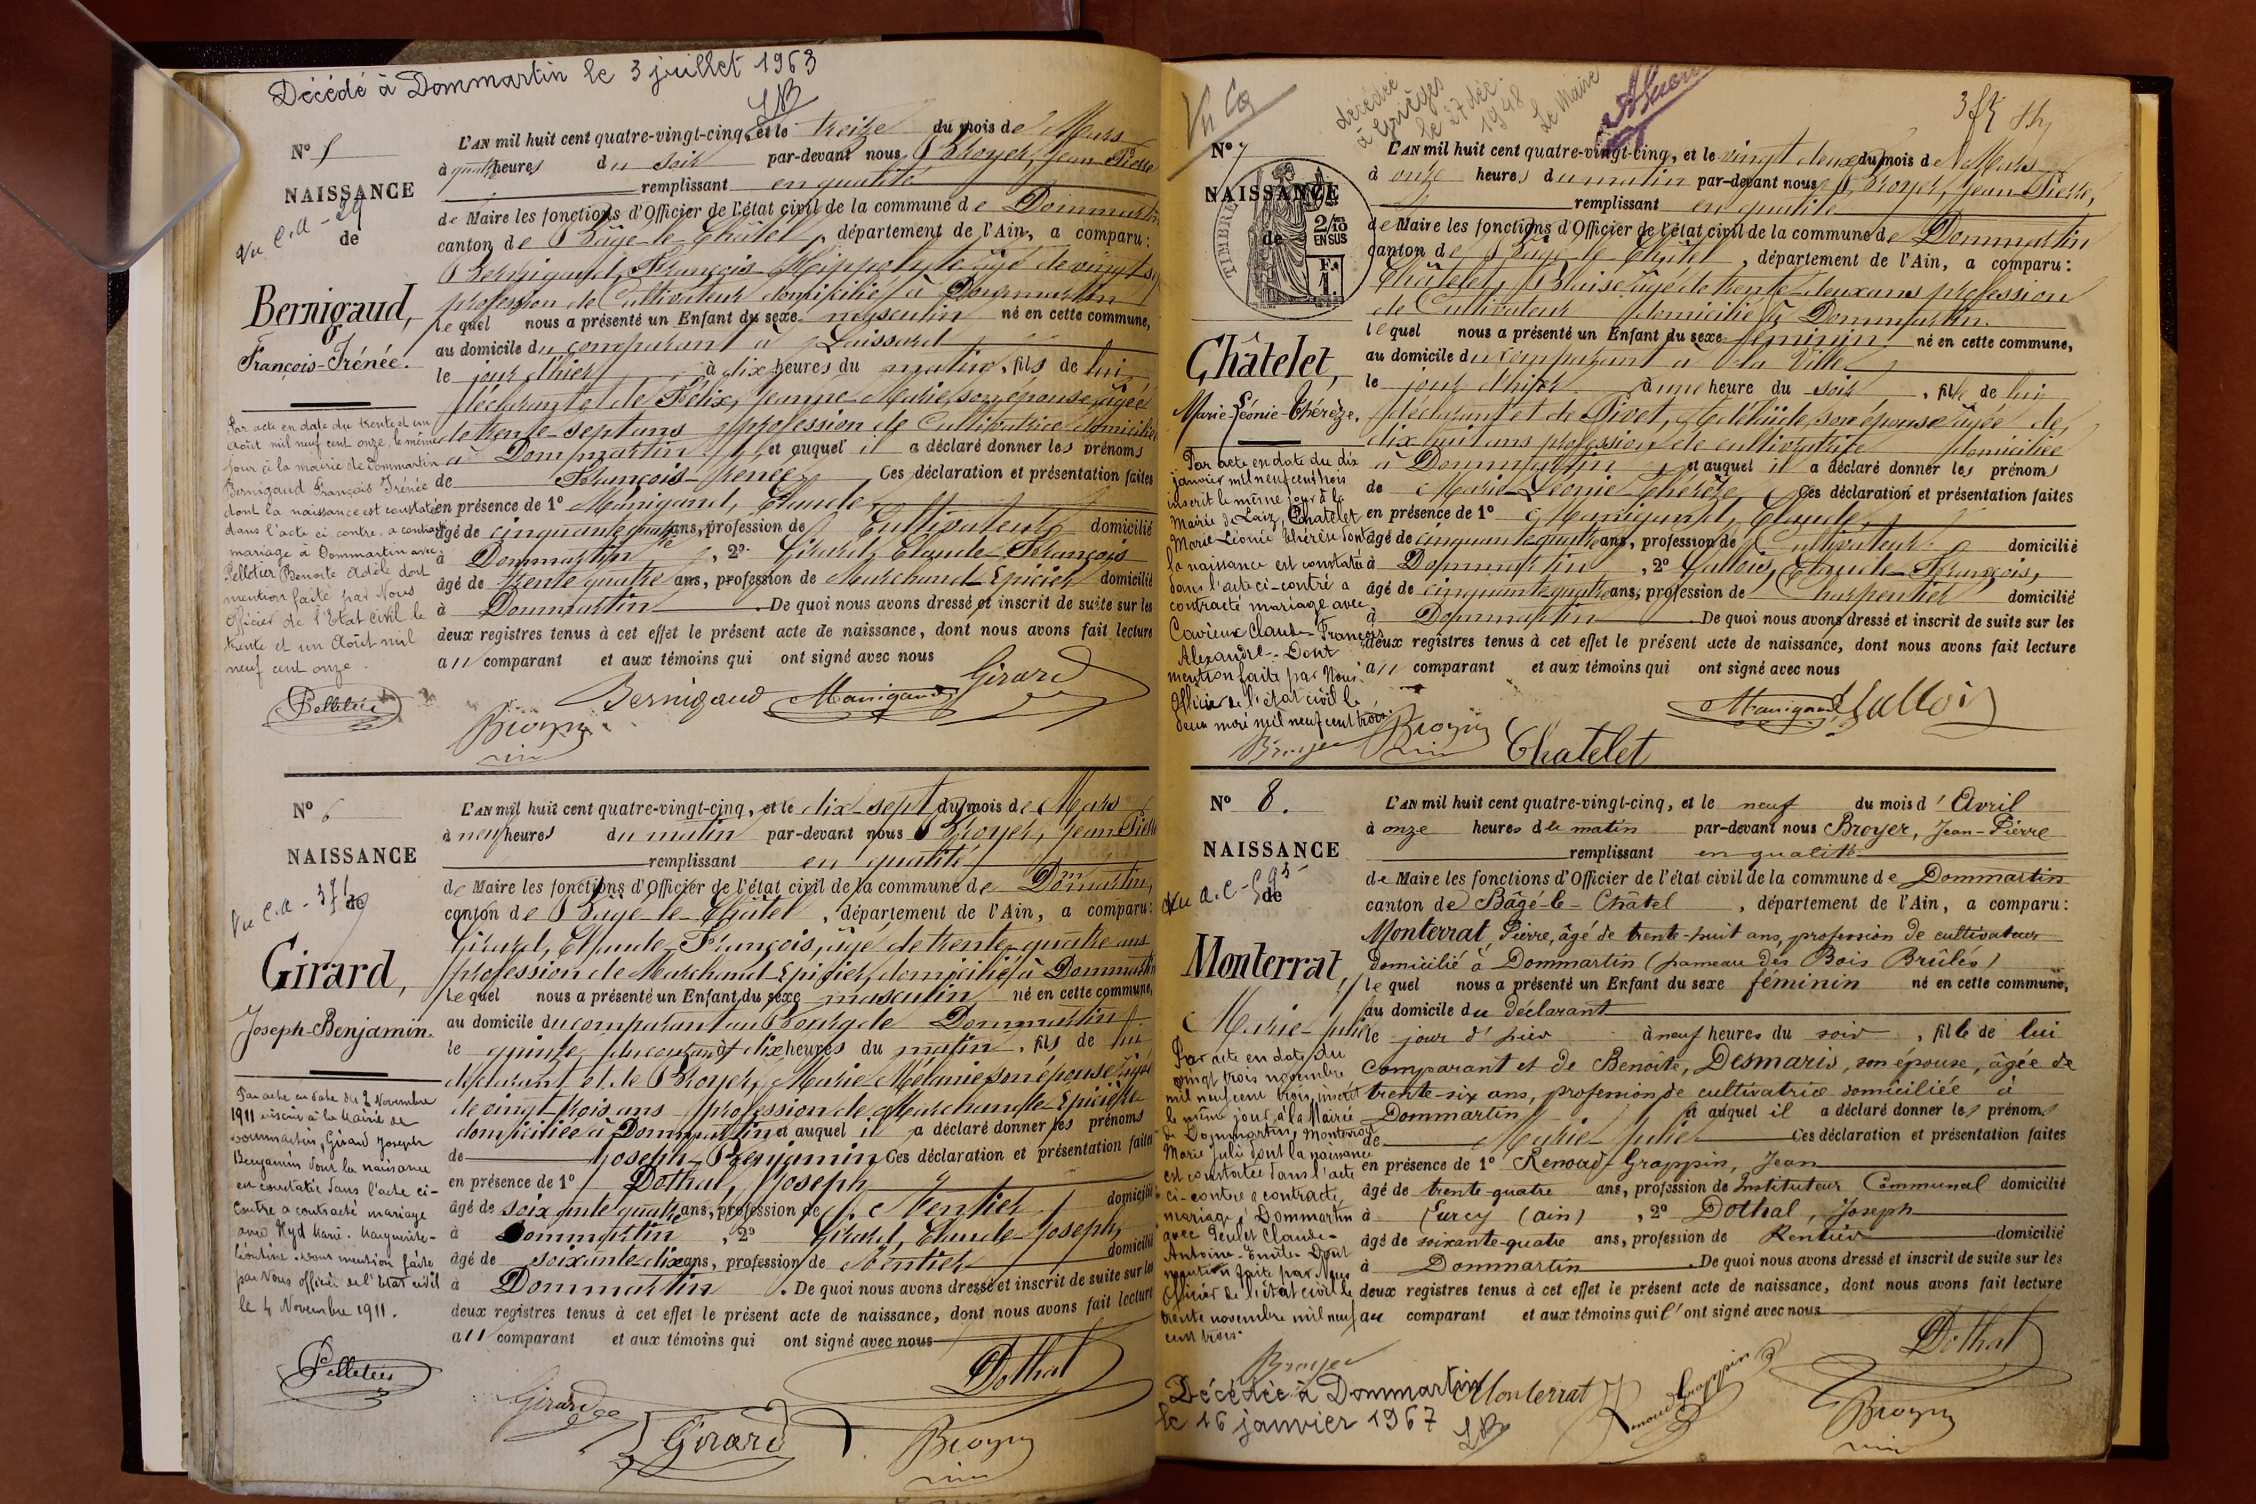 Décédé à Dommartin le 3 juillet 1963
N° 5
NAISSANCE
Vu C.A - 29
de
Bernigaud,
François-Irénée.
Par acte en date du trente et un
Août mil neuf cent onze, le même
jour à la mairie de Dommartin
Bernigaud François Irénée
dont la naissance est constatée
dans l'acte ci contre a contracté
mariage à Dommartin avec
Pelletier Benoite Adèle dont
mention faite par Nous
Officier de l'Etat Civil le
trente et un Août mil
neuf cent onze.
Pelletier
L'AN mil huit cent quatre-vingt-cinq, et le treize du mois de Mars
à quatre heures du soir par-devant nous Broyer, Jean Pierre
remplissant en qualité
de Maire les fonctions d'Officier de l'état civil de la commune de Dommartin
canton de Bâgé-le-Châtel, département de l'Ain, a comparu:
Bernigaud, François-Hippolyte âgé de vingt
profession de Cultivateur domicilié à Dommartin
lequel nous a présenté un Enfant du sexe masculin né en cette commune,
au domicile du comparant à
le jour d'hier à dix heures du matin, fils de lui
déclarant et de Félix, Jeanne-Marie, son épouse âgée
de trente-sept ans profession de Cultivatrice domiciliée
à Dommartin et auquel il a déclaré donner les prénoms
de François-Irénée Ces déclaration et présentation faites
en présence de 1° Manigand, Claude
âgé de cinquante quatre ans, profession de Cultivateur domicilié
à Dommartin, 2° Girard, Claude-François
âgé de trente quatre ans, profession de Marchand-Epicier domicilié
à Dommartin. De quoi nous avons dressé et inscrit de suite sur les
deux registres tenus à cet effet le présent acte de naissance, dont nous avons fait lecture
au comparant et aux témoins qui ont signé avec nous
Bernigaud Manigand Girard
Broyer
N° 6
NAISSANCE
Vu C.A - 37
de
Girard,
Joseph-Benjamin.
Par acte en date du 2 Novembre
1911 inscrit à la Mairie de
Dommartin, Girard Joseph
Benjamin dont la naissance
est constatée dans l'acte ci-
contre a contracté mariage
avec Hyd Marie-Marguerite-
Léontine. dont mention faite
par Nous officier de l'Etat civil
le 4 Novembre 1911.
Pelletier
L'AN mil huit cent quatre-vingt-cinq, et le dix-sept du mois de Mars
à neuf heures du matin par-devant nous Broyer, Jean Pierre
remplissant en qualité
de Maire les fonctions d'Officier de l'état civil de la commune de Dommartin,
canton de Bâgé-le-Châtel, département de l'Ain, a comparu:
Girard, Claude-François, âgé de trente-quatre ans
profession de Marchand Epicier, domicilié à Dommartin
lequel nous a présenté un Enfant du sexe masculin né en cette commune,
au domicile du comparant au Bourg de Dommartin
le quinze du courant à dix heures du matin, fils de lui
déclarant et de Broyer, Marie Mélanie son épouse âgée
de vingt-trois ans profession de Marchande-Epicière
domiciliée à Dommartin et auquel il a déclaré donner les prénoms
de Joseph-Benjamin Ces déclaration et présentation faites
en présence de 1° Dothal, Joseph
âgé de soixante quatre ans, profession de Rentier domicilié
à Dommartin, 2° Girard, Claude-Joseph,
âgé de soixante-dix ans, profession de Rentier domicilié
à Dommartin. De quoi nous avons dressé et inscrit de suite sur les
deux registres tenus à cet effet le présent acte de naissance, dont nous avons fait lecture
au comparant et aux témoins qui ont signé avec nous
Dothal
Girard
Girard Broyer
décédée
à Grièges
le 27 déc.
1948
Le Maire
N° 7
NAISSANCE
de
TIMBRE
2/10
EN SUS
1 F.
Châtelet,
Marie-Léonie-Thérèze.
Par acte en date du dix
janvier mil neuf cent trois
inscrit le même jour à la
Mairie de Laiz, Chatelet
Marie Léonie Thérèse dont
la naissance est constatée
dans l'acte ci-contre a
contracté mariage avec
Cavieux Claude-François
Alexandre-. Dont
mention faite par Nous
Officier de l'état civil le
deux mars mil neuf cent trois.
Broyer
L'AN mil huit cent quatre-vingt-cinq, et le vingt deux du mois de Mars
à onze heures du matin par-devant nous Broyer, Jean Pierre,
remplissant en qualité
de Maire les fonctions d'Officier de l'état civil de la commune de Dommartin
canton de Bâgé-le-Châtel, département de l'Ain, a comparu:
Châtelet, Blaise âgé de trente-deux ans profession
de Cultivateur domicilié à Dommartin.
lequel nous a présenté un Enfant du sexe féminin né en cette commune,
au domicile du comparant à la Ville
le jour d'hier à une heure du soir, fille de lui
déclarant et de Pivet, Adélaïde son épouse âgée de
dix huit ans profession de cultivatrice domiciliée
à Dommartin et auquel il a déclaré donner les prénoms
de Marie-Léonie Thérèze, Ces déclaration et présentation faites
en présence de 1° Manigand, Claude,
âgé de cinquante quatre ans, profession de Cultivateur domicilié
à Dommartin, 2° Gallois, Claude-François,
âgé de cinquante quatre ans, profession de Charpentier domicilié
à Dommartin De quoi nous avons dressé et inscrit de suite sur les
deux registres tenus à cet effet le présent acte de naissance, dont nous avons fait lecture
au comparant et aux témoins qui ont signé avec nous
Manigand Gallois
Broyer Chatelet
N° 8.
NAISSANCE
de
Monterrat,
Marie-Julie
Par acte en date du
vingt trois novembre
mil neuf cent trois, inscrit
le même jour à la Mairie
de Dommartin, Monterrat
Marie Julie dont la naissance
est constatée dans l'acte
ci-contre a contracté
mariage à Dommartin
avec Feulet Claude-
Antoine-Emile-. Dont
mention faite par Nous
Officier de l'état civil le
trente novembre mil neuf
cent trois.
Broyer
L'AN mil huit cent quatre-vingt-cinq, et le neuf du mois d'Avril
à onze heures du matin par-devant nous Broyer, Jean-Pierre
remplissant en qualité
de Maire les fonctions d'Officier de l'état civil de la commune de Dommartin
canton de Bâgé-le-Châtel, département de l'Ain, a comparu:
Monterrat, Pierre, âgé de trente-huit ans, profession de cultivateur
domicilié à Dommartin (hameau des Bois Brûlés)
lequel nous a présenté un Enfant du sexe féminin né en cette commune,
au domicile du déclarant
le jour d'hier à neuf heures du soir, fille de lui
comparant et de Benoîte, Desmaris, son épouse, âgée de
trente-six ans, profession de cultivatrice domiciliée à
Dommartin et auquel il a déclaré donner les prénoms
de Marie-Julie Ces déclaration et présentation faites
en présence de 1° Renoud-Grappin, Jean
âgé de trente-quatre ans, profession de Instituteur Communal domicilié
à Curcy (ain), 2° Dothal, Joseph
âgé de soixante-quatre ans, profession de Rentier domicilié
à Dommartin. De quoi nous avons dressé et inscrit de suite sur les
deux registres tenus à cet effet le présent acte de naissance, dont nous avons fait lecture
au comparant et aux témoins qui l'ont signé avec nous
Dothal
Monterrat Renoud Grappin
Broyer
Décédée à Dommartin
le 16 janvier 1967